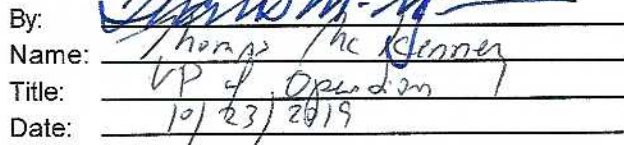 By:
Name: Thomas McKenney
Title: VP of Operation
Date: 10/23/2019